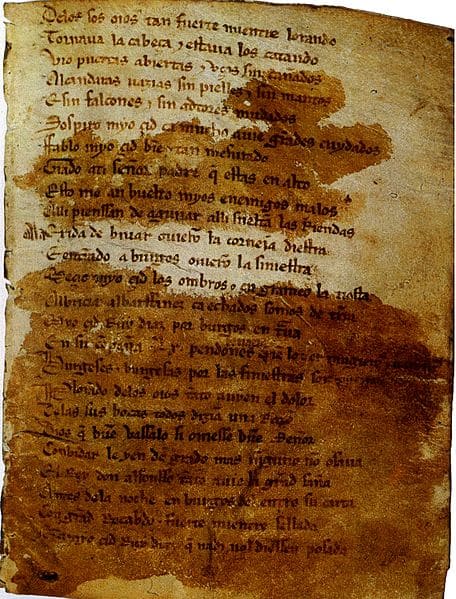 Delos sos oios tan fuerte mientre lorando
Tornava la cabeça ⁊ estava los catando
Vio puertas abiertas ⁊ vços sin cañados
Alcandaras uazias sin pielles ⁊ sin mantos
E sin falcones ⁊ sin adtores mudados
Sospiro myo çid ca mucho auie grādes cuydados
Fablo myo çid bien ⁊ tan mesurado
Grado ati señor padre q̄ estas en alto
Esto me an buelto myos enemigos malos
Alli pienssan de aguiiar alli sueltā las Riendas
Ala exida de biuar ouierō la corneia diestra
E entrādo a burgos ouierō la siniestra
Meçio myo çid los ombros ⁊ en grameo la tiesta
Albricia albarffanez ca echados somos de tierra
Myo çid Ruy diaz por burgos en
En su cōpaña .Lx. pendones
Burgeses ⁊ burgesas por las finiestras son
Plorando delos oios tāto auyen el dolor
Delas sus bocas todos dizian una Razō
Dios q̄ buē vassalo si ouiesse buē Señor
Conbidar le yen de grado mas ninguno no osaua
El Rey don alfonsso tāto auie la grād saña
Antes dela noche en burgos del entro su carta
Con grād Recabdo ⁊ fuerte mientre sellada
Que a myo çid Ruy diaz q̄ nadi nol diessen posada